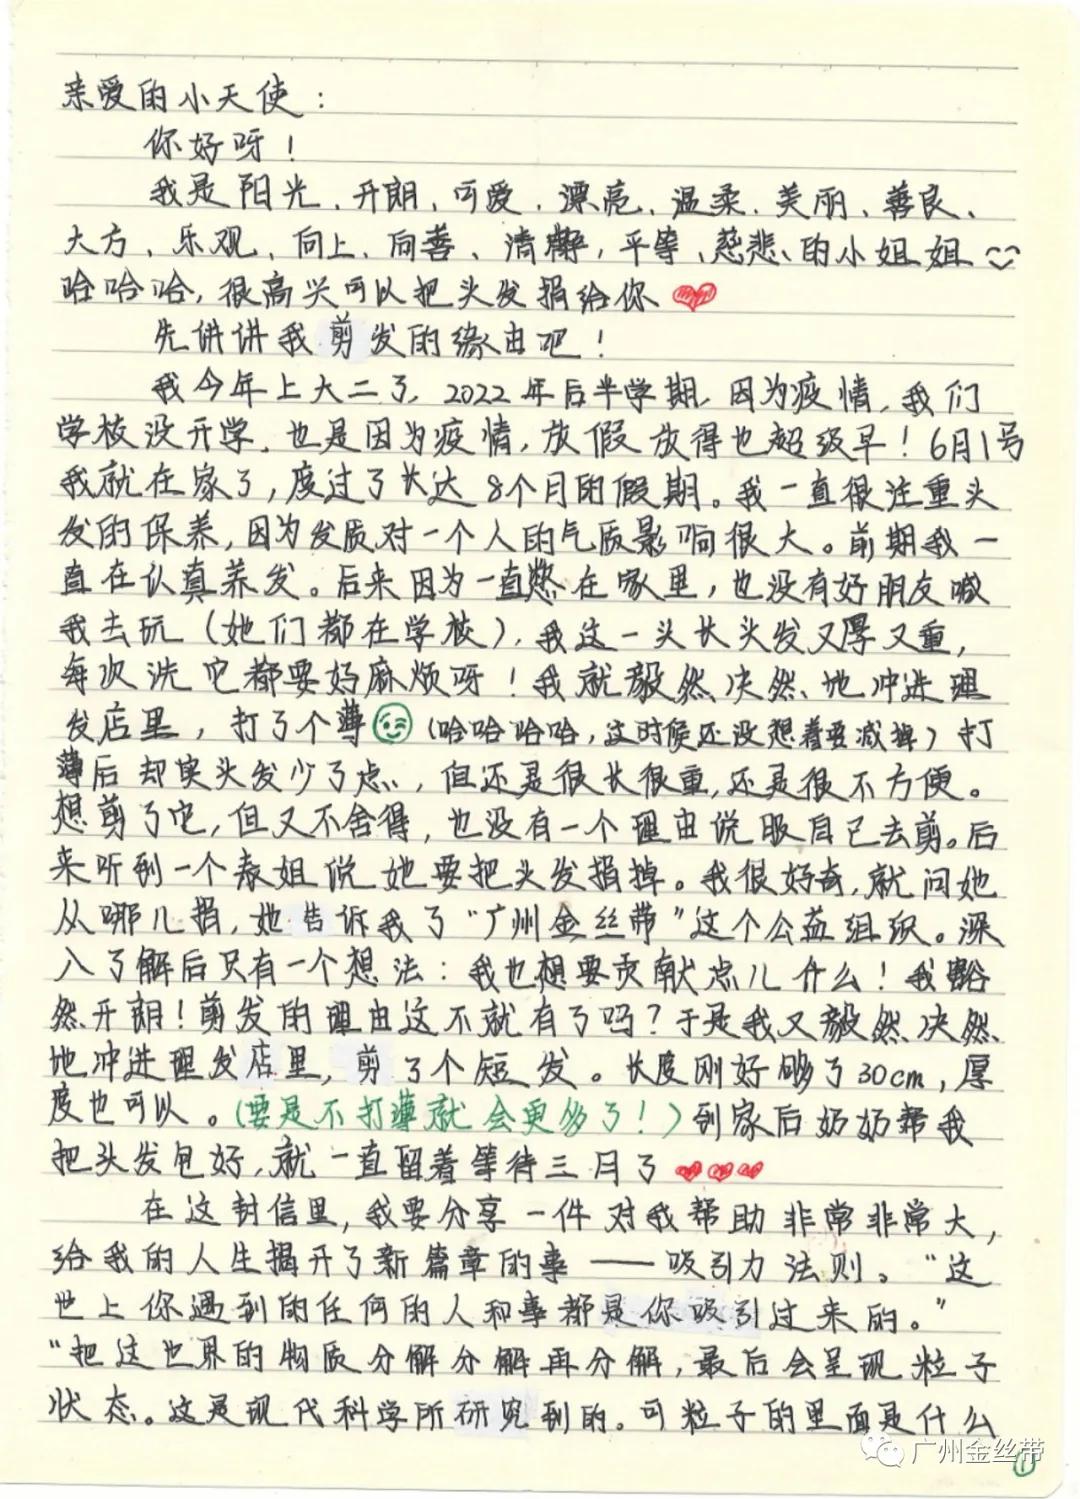 亲爱的小天使：
你好呀！
我是阳光、开朗、可爱、漂亮、温柔、美丽、善良、
大方、乐观、向上、向善、清静，平等、慈悲、的小姐姐
哈哈哈，很高兴可以把头发捐给你
先讲讲我剪发的缘由吧！
我今年上大二了，2022年后半学期，因为疫情，我们
学校没开学、也是因为疫情，放假放得也超级早！6月1号
我就在家了，度过了长达8个月的假期。我一直很注重头
发的保养，因为发质对一个人的气质影响很大。前期我一
直在认真养发。后来因为一直在家里，也没有好朋友喊
我去玩（她们都在学校），我这一头长头发又厚又重，
每次洗它都要好麻烦呀！我就毅然决然、地冲进理
发店里，打了个薄（哈哈哈哈，这时候还没想着要减掉）打
薄后却实头发少了点，但还是很长很重，还是很不方便。
想剪了它，但又不舍得，也没有一个理由说服自己去剪。后
来听到一个表姐说她要把头发捐掉。我很好奇，就问她
从哪儿捐，她告诉我了“广州金丝带”这个公益组织。深
入了解后只有一个想法：我也想要贡献点儿什么！我豁
然开朗！剪发的理由这不就有了吗？于是我又毅然决然
地冲进理发店里，剪了个短发。长度刚好够了30cm，厚
度也可以。（要是不打薄就会更多了！）到家后奶奶帮我
把头发包好，就一直留着等待三月了
在这封信里，我要分享一件对我帮助非常非常大，
给我的人生揭开了新篇章的事——吸引力法则。“这
世上你遇到的任何的人和事都是你吸引过来的。”
“把这世界的物质分解分解再分解，最后会呈现粒子
状态。这是现代科学所研究到的。可粒子的里面是什么
广州金丝带
1